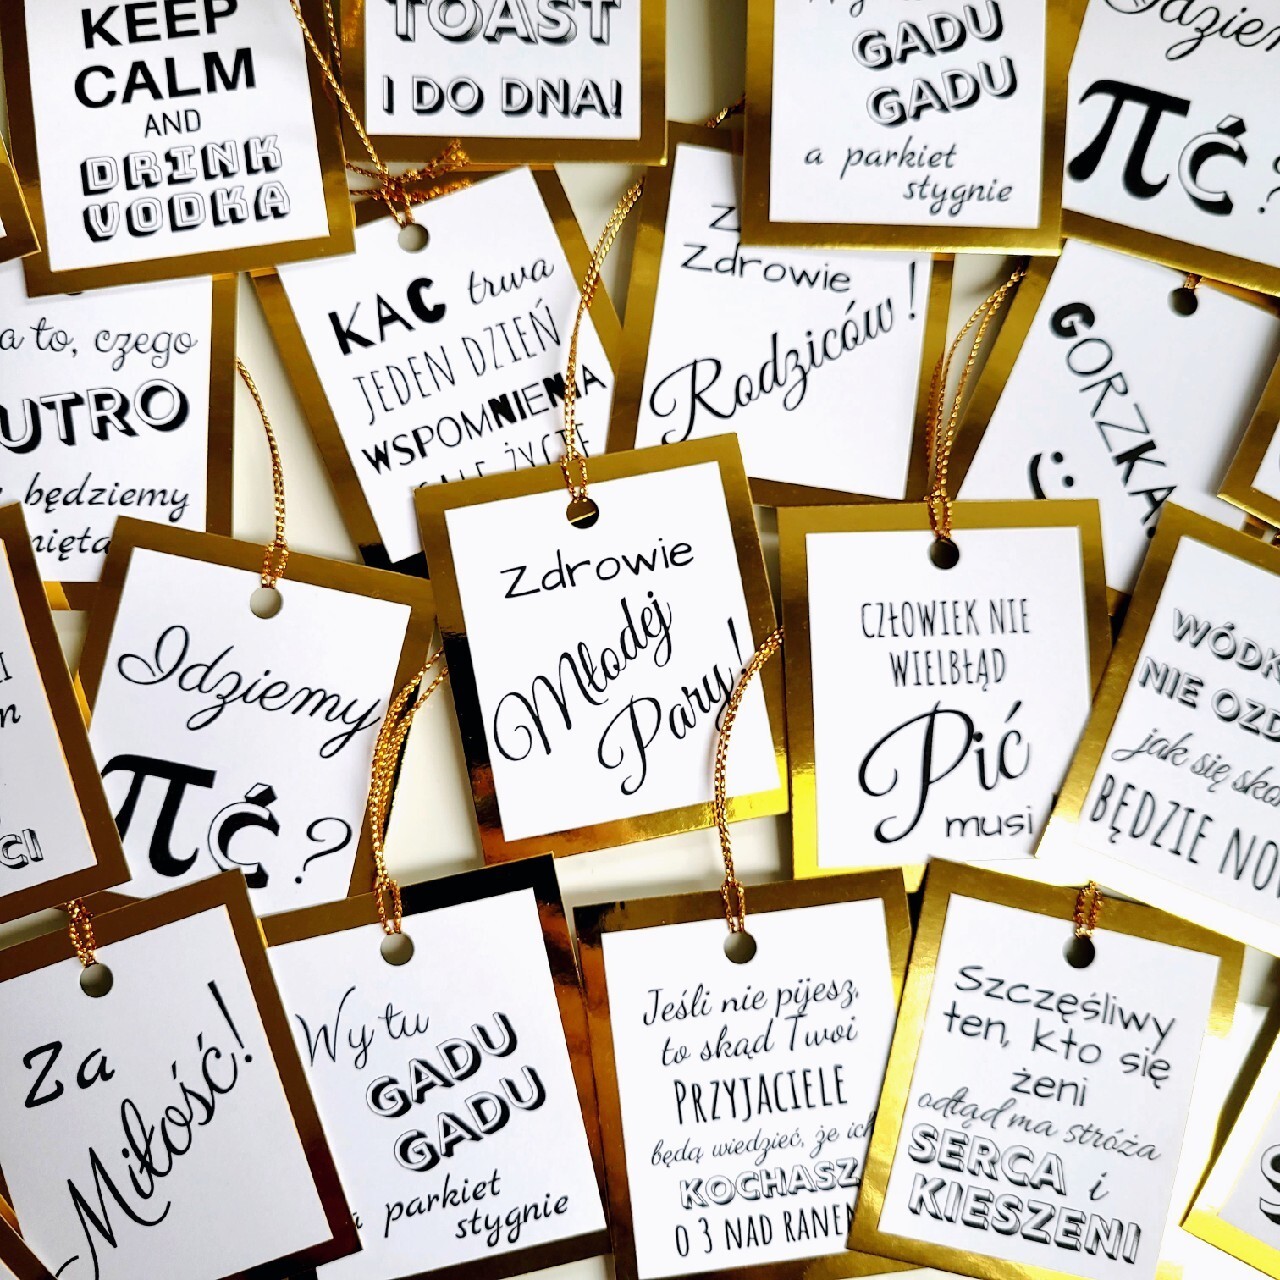 KEEP
CALM
AND
DRINK
VODKA
TOAST
I DO DNA!
GADU
GADU
a parkiet
stygnie
πć?
to, czego
będziemy
KAC trwa
JEDEN DZIEŃ
WSPOMNIENIA
Zdrowie
Rodziców!
GORZKA!
:)
Idziemy
πć?
Zdrowie
Młodej
Pary!
CZŁOWIEK NIE
WIELBŁĄD
Pić
musi
NIE
jak się
BĘDZIE
Za
Miłość!
Wy tu
GADU
GADU
a parkiet
stygnie
Jeśli nie pijesz,
to skąd Twoi
PRZYJACIELE
będą wiedzieć, że ich
KOCHASZ
O 3 NAD RANEM
Szczęśliwy
ten, kto się
żeni
odtąd ma stróża
SERCA i
KIESZENI